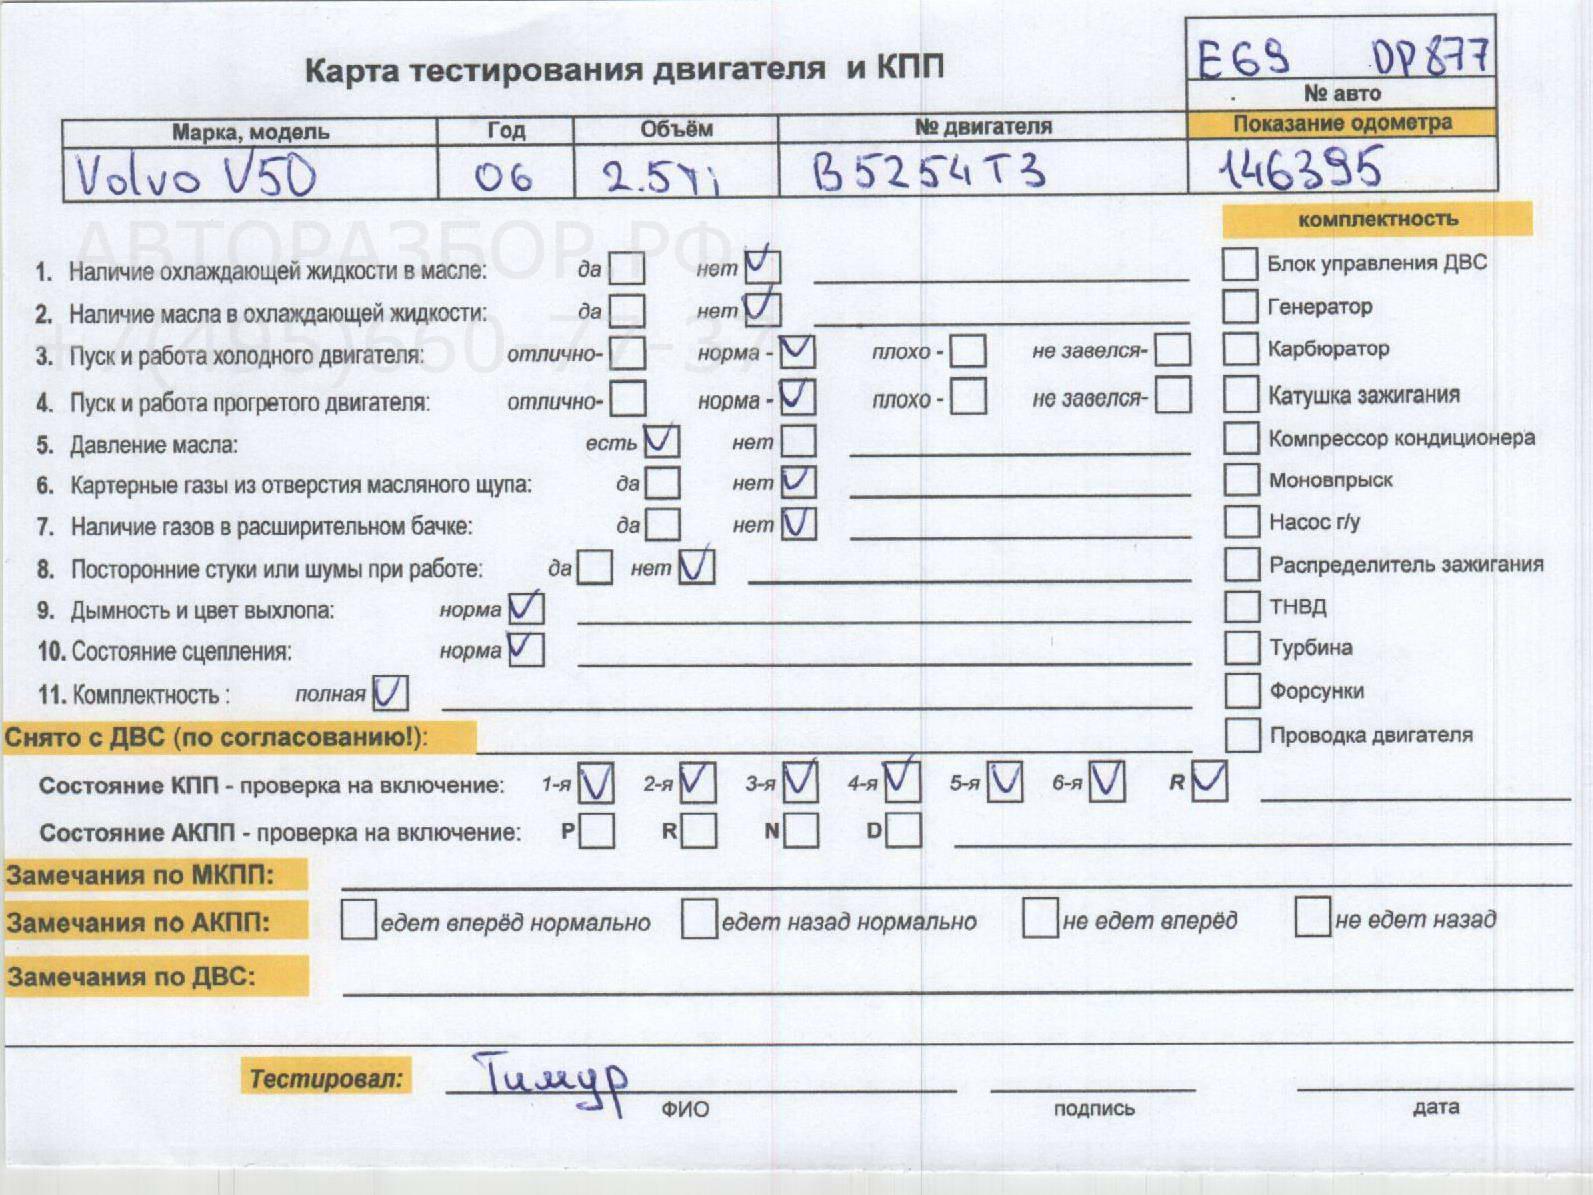 Карта тестирования двигателя и КПП
E69 DP877
№ авто
Марка, модель Год Объём № двигателя Показание одометра
Volvo V50 06 2.5Ti B5254T3 146395
АВТОРАЗБОР.РФ
+7(495)660-77-37
комплектность
1. Наличие охлаждающей жидкости в масле: да нет
Блок управления ДВС
2. Наличие масла в охлаждающей жидкости: да нет
Генератор
3. Пуск и работа холодного двигателя: отлично- норма - плохо - не завелся-
Карбюратор
4. Пуск и работа прогретого двигателя: отлично- норма - плохо - не завелся-
Катушка зажигания
5. Давление масла: есть нет
Компрессор кондиционера
6. Картерные газы из отверстия масляного щупа: да нет
Моновпрыск
7. Наличие газов в расширительном бачке: да нет
Насос г/у
8. Посторонние стуки или шумы при работе: да нет
Распределитель зажигания
9. Дымность и цвет выхлопа: норма
ТНВД
10. Состояние сцепления: норма
Турбина
11. Комплектность : полная
Форсунки
Снято с ДВС (по согласованию!):
Проводка двигателя
Состояние КПП - проверка на включение: 1-я 2-я 3-я 4-я 5-я 6-я R
Состояние АКПП - проверка на включение: P R N D
Замечания по МКПП:
Замечания по АКПП: едет вперёд нормально едет назад нормально не едет вперёд не едет назад
Замечания по ДВС:
Тестировал: Тимур
ФИО подпись дата